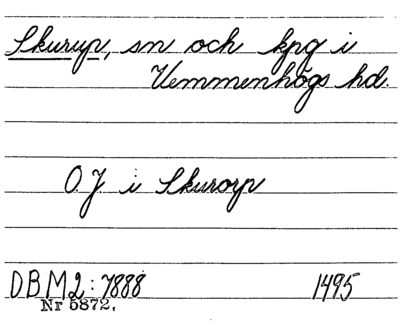 Skurup, sn och kpg i
Vemmenhögs hd.
O.J. i Skurorp
DBM2:7888 1495
Nr 5872.